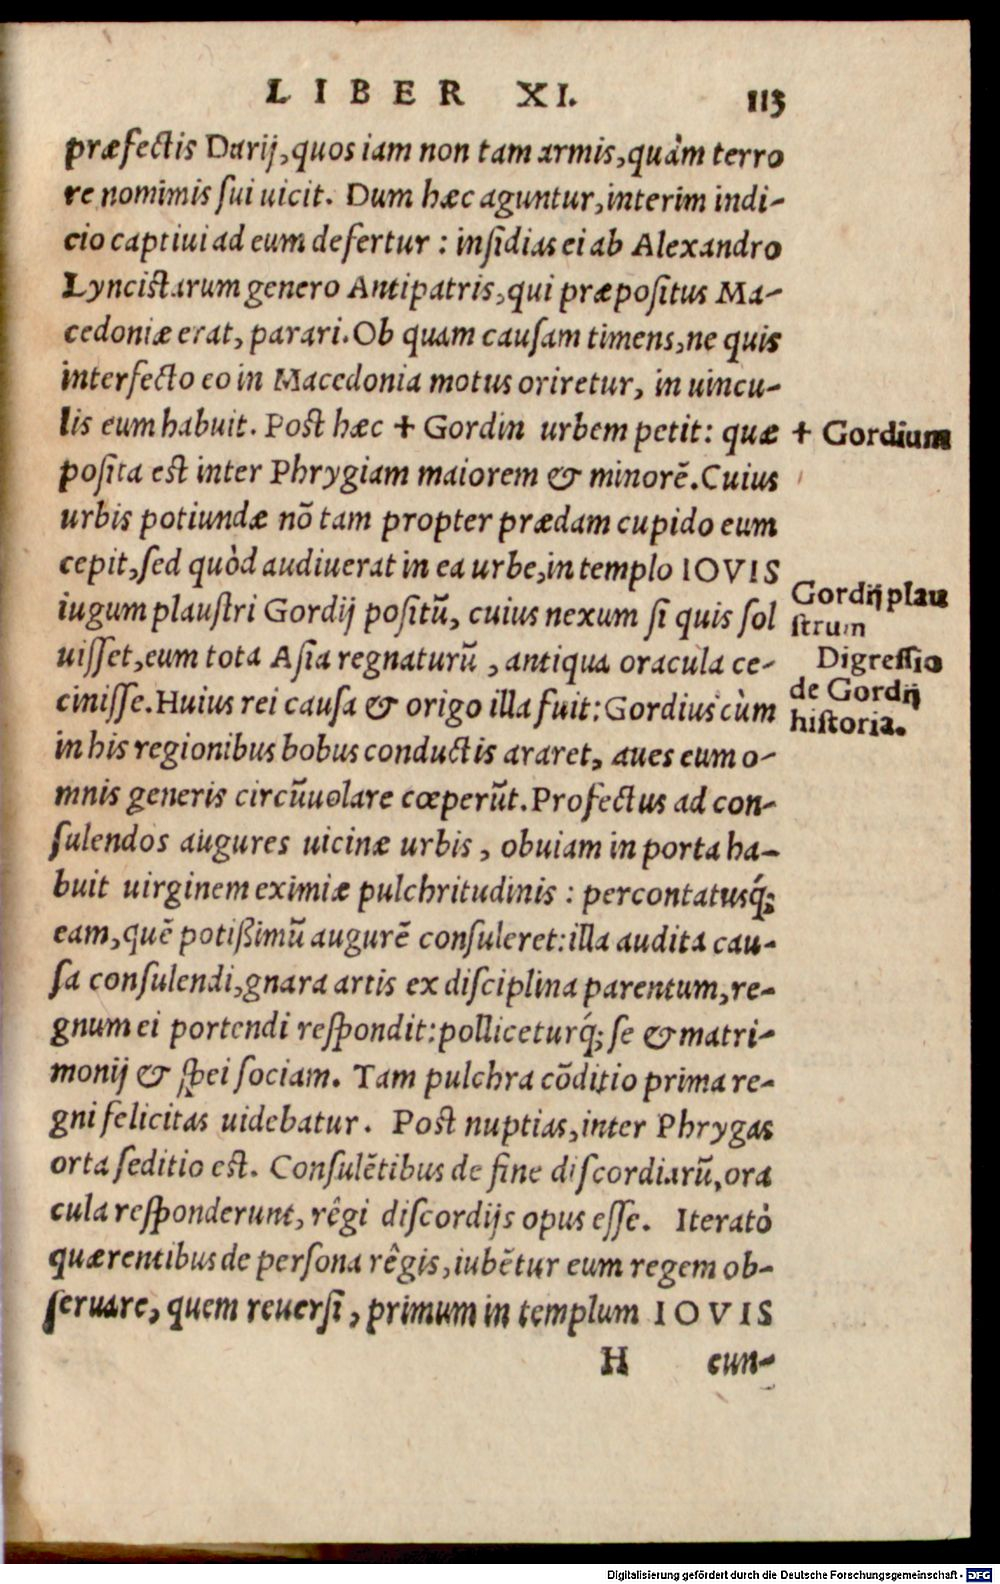 LIBER XI. 113
præfectis Darij, quos iam non tam armis, quàm terro
re nomimis sui uicit. Dum hæc aguntur, interim indi-
cio captiui ad eum defertur : insidias ei ab Alexandro
Lyncistarum genero Antipatris, qui præpositus Ma-
cedoniæ erat, parari. Ob quam causam timens, ne quis
interfecto eo in Macedonia motus oriretur, in uincu-
lis eum habuit. Post hæc + Gordin urbem petit: quæ
+ Gordium
posita est inter Phrygiam maiorem & minorẽ. Cuius
urbis potiundæ nõ tam propter prædam cupido eum
cepit, sed quòd audiuerat in ea urbe, in templo IOVIS
iugum plaustri Gordij positũ, cuius nexum si quis sol
Gordij plau
strum
uisset, eum tota Asia regnaturũ , antiqua oracula ce-
cinisse. Huius rei causa & origo illa fuit: Gordius cùm
Digressio
de Gordij
historia.
in his regionibus bobus conductis araret, aues eum o-
mnis generis circũuolare cœperũt. Profectus ad con-
sulendos augures uicinæ urbis , obuiam in porta ha-
buit uirginem eximiæ pulchritudinis : percontatusq́;
eam, quẽ potißimũ augurẽ consuleret: illa audita cau-
sa consulendi, gnara artis ex disciplina parentum, re-
gnum ei portendi respondit: polliceturq́; se & matri-
monij & spei sociam. Tam pulchra cõditio prima re-
gni felicitas uidebatur. Post nuptias, inter Phrygas
orta seditio est. Consulẽtibus de fine discordiarũ, ora
cula responderunt, rêgi discordijs opus esse. Iteratò
quærentibus de persona rêgis, iubẽtur eum regem ob-
seruare, quem reuersi, primum in templum IOVIS
H cun-
Digitalisierung gefördert durch die Deutsche Forschungsgemeinschaft - DFG